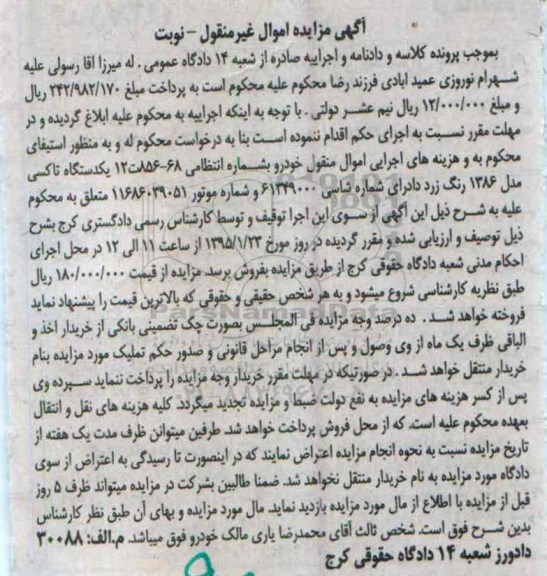 آگهی مزایده اموال غیرمنقول - نوبت
بموجب پرونده کلاسه و دادنامه و اجراییه صادره از شعبه ۱۴ دادگاه عمومی . له میرزا اقا رسولی علیه
شهرام نوروزی عمید ابادی فرزند رضا محکوم علیه محکوم است به پرداخت مبلغ ۲۴۲/۹۸۲/۱۷۰ ریال
و مبلغ ۱۲/۰۰۰/۰۰۰ ریال نیم عشر دولتی . با توجه به اینکه اجراییه به محکوم علیه ابلاغ گردیده و در
مهلت مقرر نسبت به اجرای حکم اقدام ننموده است بنا به درخواست محکوم له و به منظور استیفای
محکوم به و هزینه های اجرایی اموال منقول خودرو بشماره انتظامی ۶۸-۸۵۶ت۱۲ یکدستگاه تاکسی
مدل ۱۳۸۶ رنگ زرد دادرای شماره شاسی ۶۱۳۴۹۰۰۰ و شماره موتور ۱۱۶۸۶۰۳۹۰۵۱ متعلق به محکوم
علیه به شرح ذیل این آگهی از سوی این اجرا توقیف و توسط کارشناس رسمی دادگستری کرج بشرح
ذیل توصیف و ارزیابی شده و مقرر گردیده در روز مورخ ۱۳۹۵/۱/۲۳ از ساعت ۱۱ الی ۱۲ در محل اجرای
احکام مدنی شعبه دادگاه حقوقی کرج از طریق مزایده بفروش برسد. مزایده از قیمت ۱۸۰/۰۰۰/۰۰۰ ریال
طبق نظریه کارشناسی شروع میشود و به هر شخص حقیقی و حقوقی که بالاترین قیمت را پیشنهاد نماید
فروخته خواهد شد . ده درصد وجه مزایده فی المجلس بصورت چک تضمینی بانکی از خریدار اخذ و
الباقی ظرف یک ماه از وی وصول و پس از انجام مراحل قانونی و صدور حکم تملیک مورد مزایده بنام
خریدار منتقل خواهد شد . در صورتیکه در مهلت مقرر خریدار وجه مزایده را پرداخت ننماید سپرده وی
پس از کسر هزینه های مزایده به نفع دولت ضبط و مزایده تجدید میگردد. کلیه هزینه های نقل و انتقال
بعهده محکوم علیه است، که از محل فروش پرداخت خواهد شد. طرفین میتوانن ظرف مدت یک هفته از
تاریخ مزایده نسبت به نحوه انجام مزایده اعتراض نمایند که در اینصورت تا رسیدگی به اعتراض از سوی
دادگاه مورد مزایده به نام خریدار منتقل نخواهد شد. ضمنا طالبین بشرکت در مزایده میتواند ظرف ۵ روز
قبل از مزایده با اطلاع از مال مورد مزایده بازدید نماید. مال مورد مزایده و بهای آن طبق نظر کارشناس
بدین شرح فوق است. شخص ثالث آقای محمدرضا یاری مالک خودرو فوق میباشد. م.الف: ۳۰۰۸۸
دادورز شعبه ۱۴ دادگاه حقوقی کرج
ParsNamadData